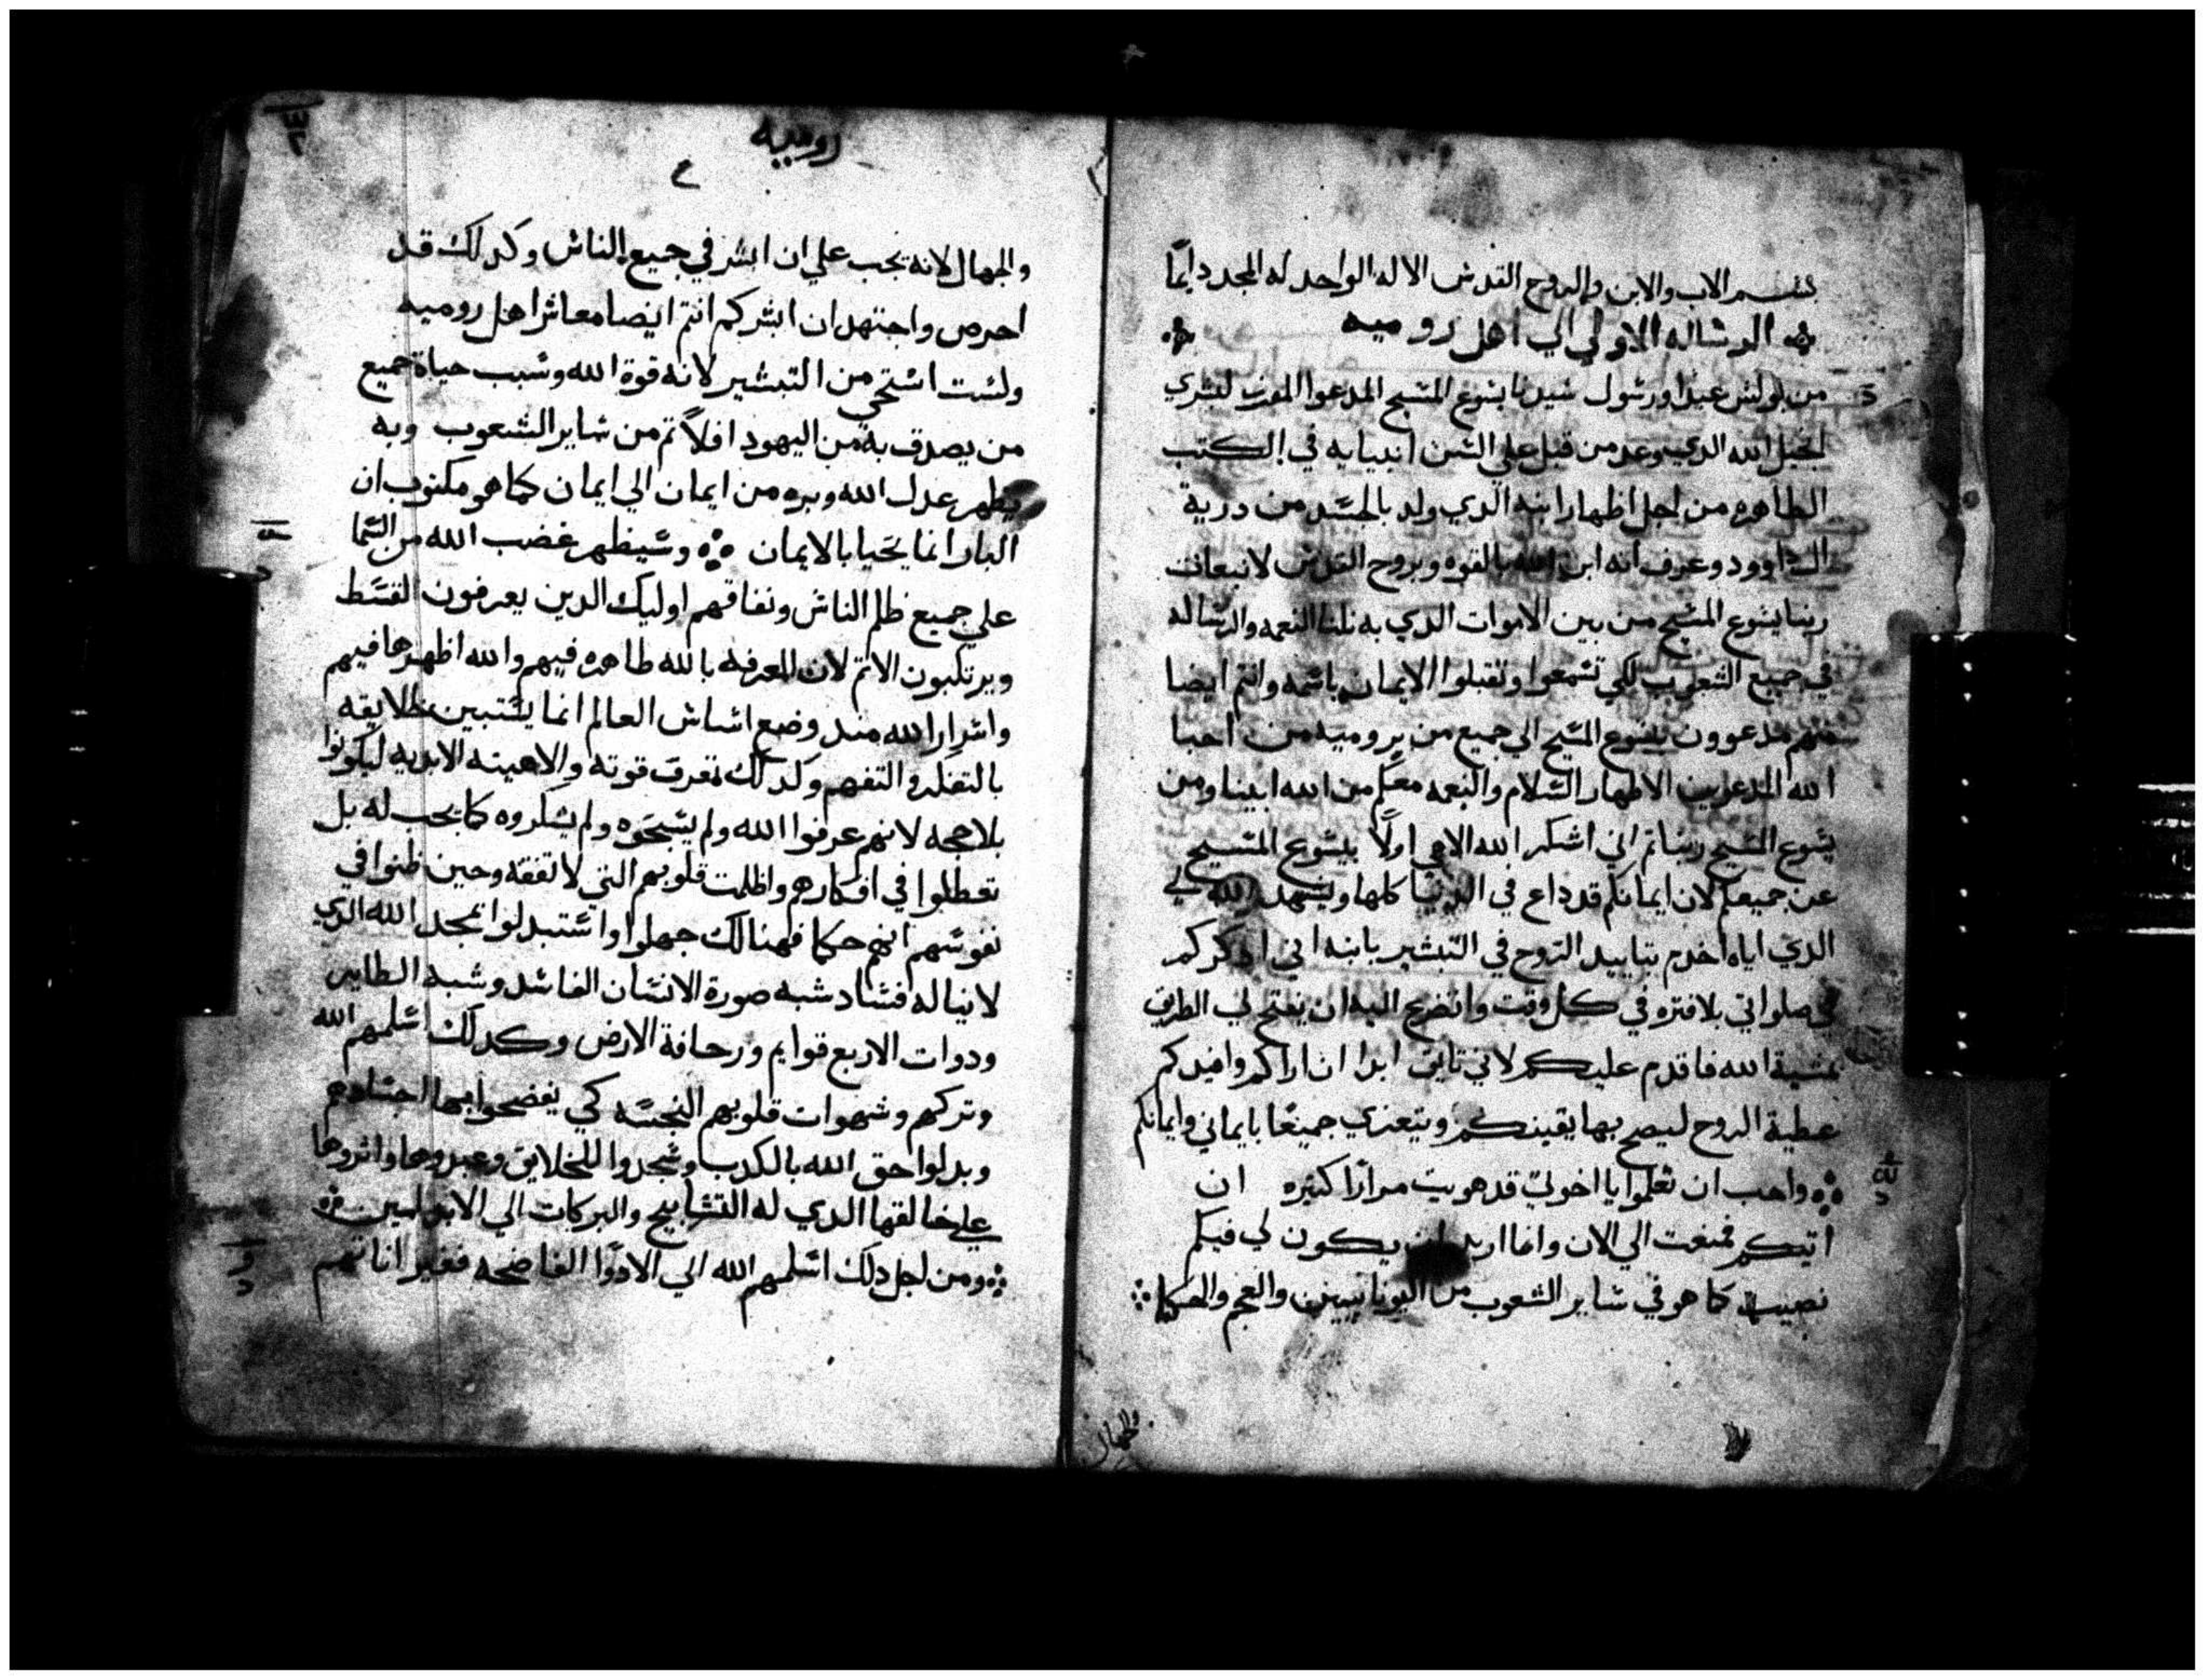 بسم الاب والابن والروح القدس الاله الواحد له المجد دايمًا
الرساله الاولي الي اهل روميه
من بولس عبدا ورسول سيدنا يسوع المسيح المدعوا المفرز لبشري
انجيل الله الدي وعد من قبل علي السن انبيايه في الكتب
الطاهره من اجل اظهار ابنه الدي ولد بالجسد من درية
داوود وعرف انه ابن الله بالقوه وبروح القدس لانبعات
ربنا يسوع المسيح من بين الاموات الدي به نلنا النعمه والرساله
في جميع الشعوب لكي تسمعوا وتقبلوا الايمان باسمه وانتم ايضا
منهم مدعوون بيسوع المسيح الي جميع من بروميه من احبا
الله المدعوين الاطهار السلام والنعمه معكم من الله ابينا ومن
يسوع المسيح ربنا تم اني اشكر الله الاهي اولًا بيسوع المسيح
عن جميعكم لان ايمانكم قد داع في الدنيا كلها ويشهد الله لي
الدي اياه اخدم بتاييد الروح في التبشير بابنه اني ادكركم
في صلواتي بلا فتره في كل وقت واتضرع اليه ان يفتح لي الطريق
بمشية الله فاقدم عليكم لاني تايق ابدا ان اراكم وافيدكم
عطية الروح ليصح بها يقينكم ونتعزي جميعًا بايماني وايمانكم
واحب ان تعلموا يا اخوتي قد هويت مرارًا كتيره ان
اتيكم فمنعت الي الان وانما اريد ان يكون لي فيكم
نصيب كما هو في ساير الشعوب من اليونانيين والعجم والحكما
والجهال
روميه
والجهال لانه يجب علي ان ابشر في جميع الناس وكدلك قد
احرص واجتهد ان ابشركم انتم ايضا معاشر اهل روميه
ولست استحي من التبشير لانه قوة الله وسبب حياة جميع
من يصدق به من اليهود اولًا تم من ساير الشعوب وبه
يظهر عدل الله وبره من ايمان الي ايمان كما هو مكتوب ان
البار انما يحيا بالايمان وسيظهر غضب الله من السما
علي جميع ظلم الناس ونفاقهم اوليك الدين يعرفون القسط
ويرتكبون الاتم لان المعرفه بالله طاهره فيهم والله اظهرها فيهم
واسرار الله مند وضع اساس العالم انما يستبين خلايقه
بالتفكر والتفهم وكدلك تعرف قوته والاهيته الابديه ليكونوا
بلا حجه لانهم عرفوا الله ولم يسبحوه ولم يشكروه كما يجب له بل
تعطلوا في افكارهم واظلمت قلوبهم التي لا تفقه وحين ظنوا في
نفوسهم انهم حكما فهنالك جهلوا واستبدلوا بمجد الله الدي
لا يناله فساد شبه صورة الانسان الفاسد وشبه الطاير
ودوات الاربع قوايم وزحافة الارض وكدلك اسلمهم الله
وتركهم وشهوات قلوبهم النجسه كي يفضحوا بها اجسادهم
وبدلوا حق الله بالكدب وسجدوا للخلايق وعبدوها واتروها
علي خالقها الدي له التسابيح والبركات الي الابد امين
ومن اجل دلك اسلمهم الله الي الادوا الفاضحه فغير اناتهم